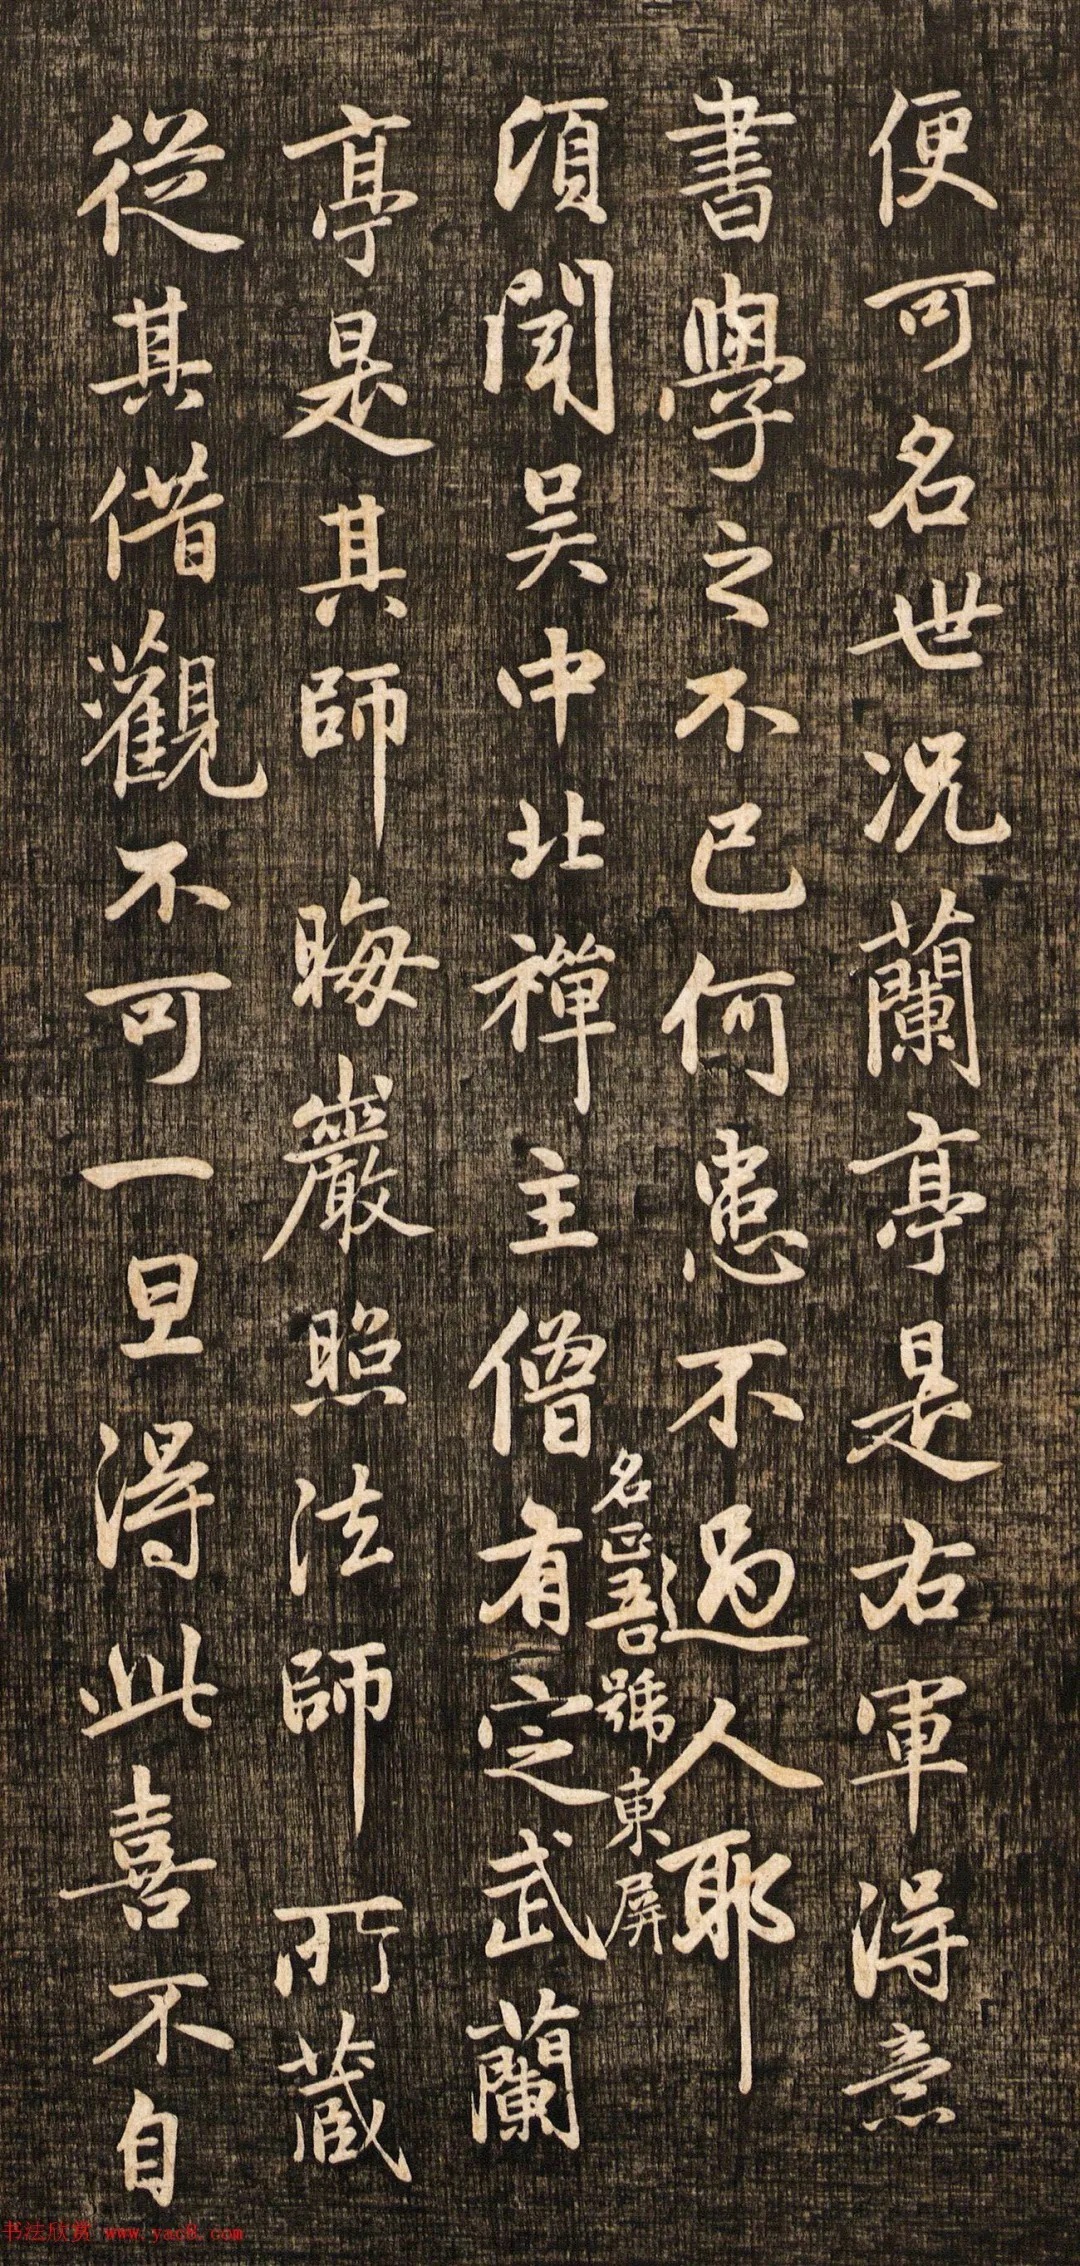 便可名世况蘭亭是右軍得意
書學之不已何患不過人耶
頃聞吴中北禪主僧有定武蘭
名正吾號東屏
亭是其師晦巖照法師所藏
從其借觀不可一旦得此喜不自
书法欣赏 www.yac8.com